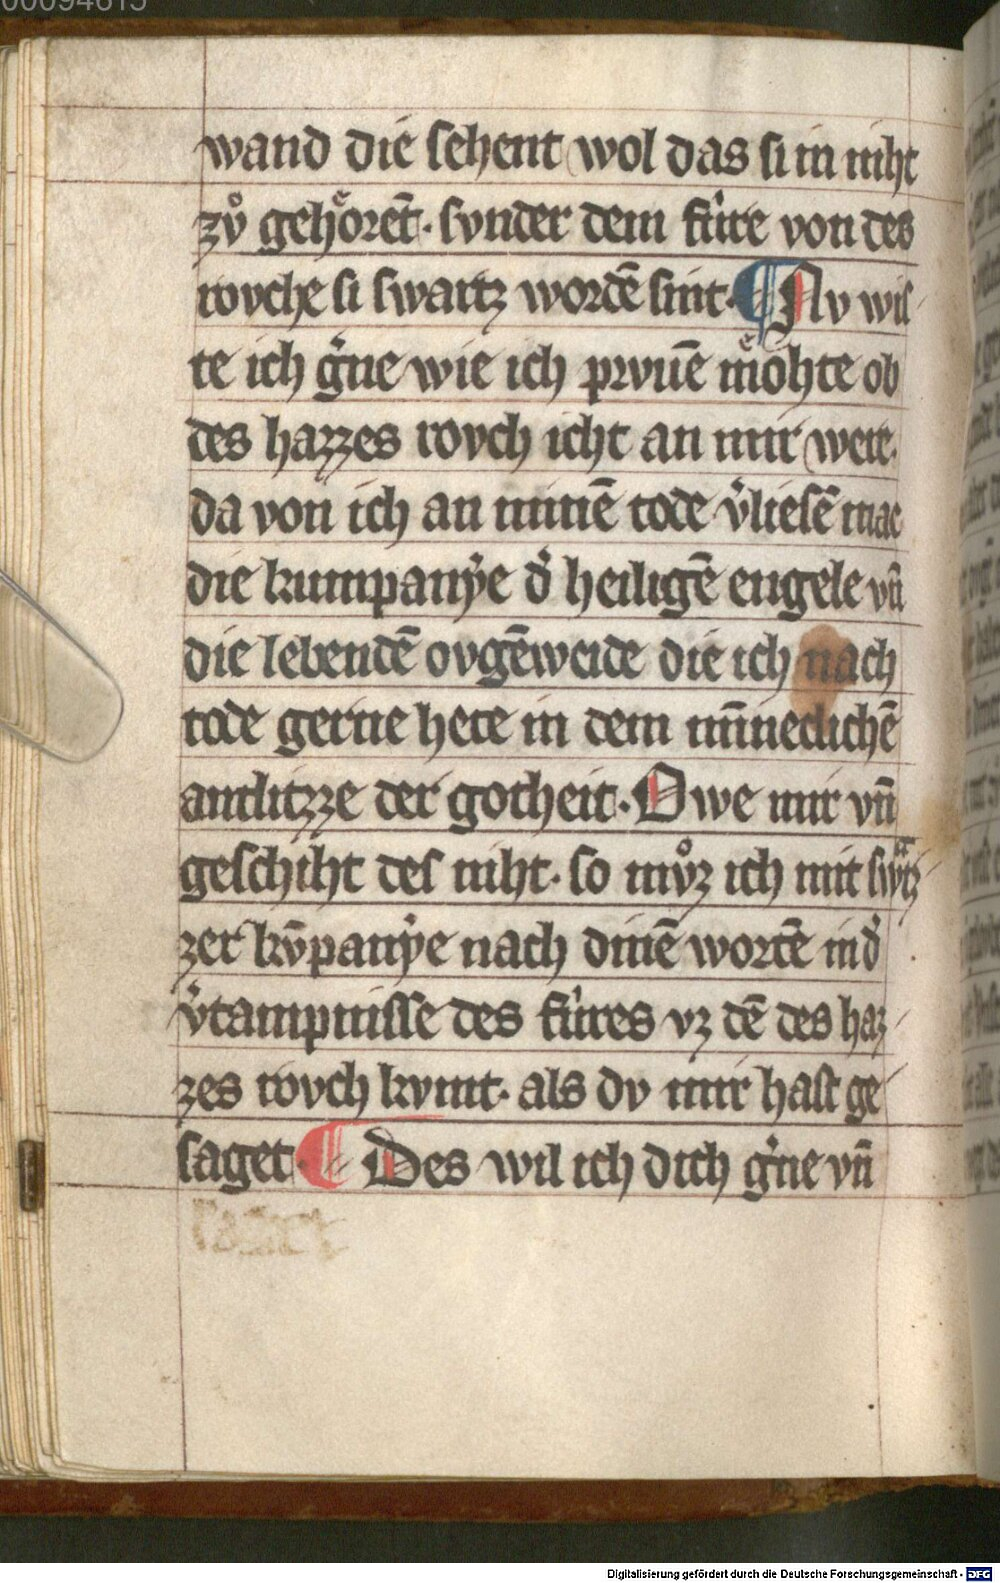 00094615
wand die sehent wol das si in niht
zuͦ gehoͤrent̄. svnder dem fu̍re von des
rovche si swartz wordē sint. ¶ Nv wis
te ich g̍ne wie ich prvuē moͤhte ob
des hazzes rovch icht an mir were.
da von ich an minē tode v̍liesē mac
die kumpanẏe d̍ heiligē engele vn̄
die lebendē ovgēweide die ich nach
tode gerne hete in dem mīneclichē
antlitzze der gotheit. Owe mir vn̄
geschiht des niht. so mvͦz ich mit swartz
zer kv̄panẏe nach dinē wortē in d̍
v̍tampnisse des fu̍res vz dē des haz
zes rovch kvmt. als dv mir hast ge
saget. ¶ Des wil ich dich g̍ne vn̄
Digitalisierung gefördert durch die Deutsche Forschungsgemeinschaft - DFG